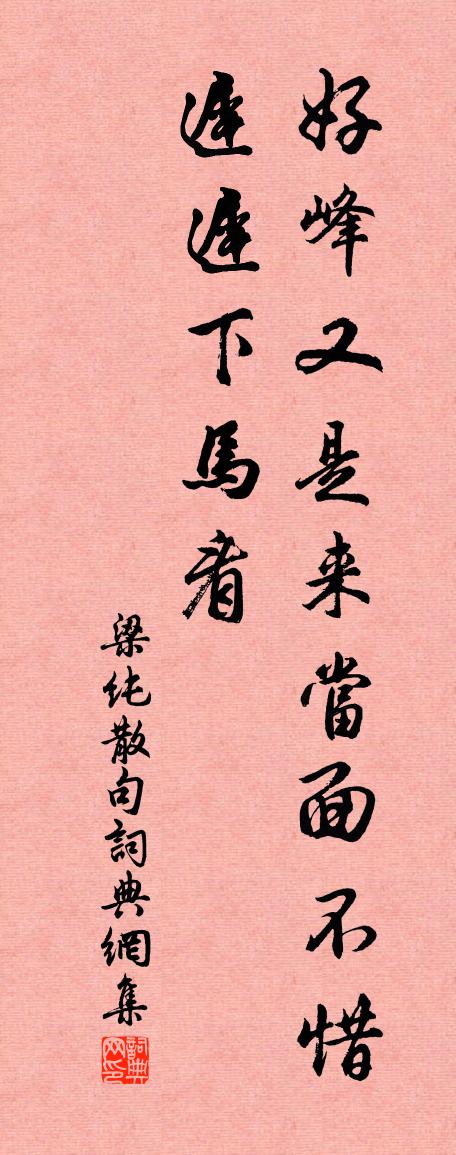 好峰又是来當面不惜
遲遲下馬看
梁純散句詞典網集
詞典网印